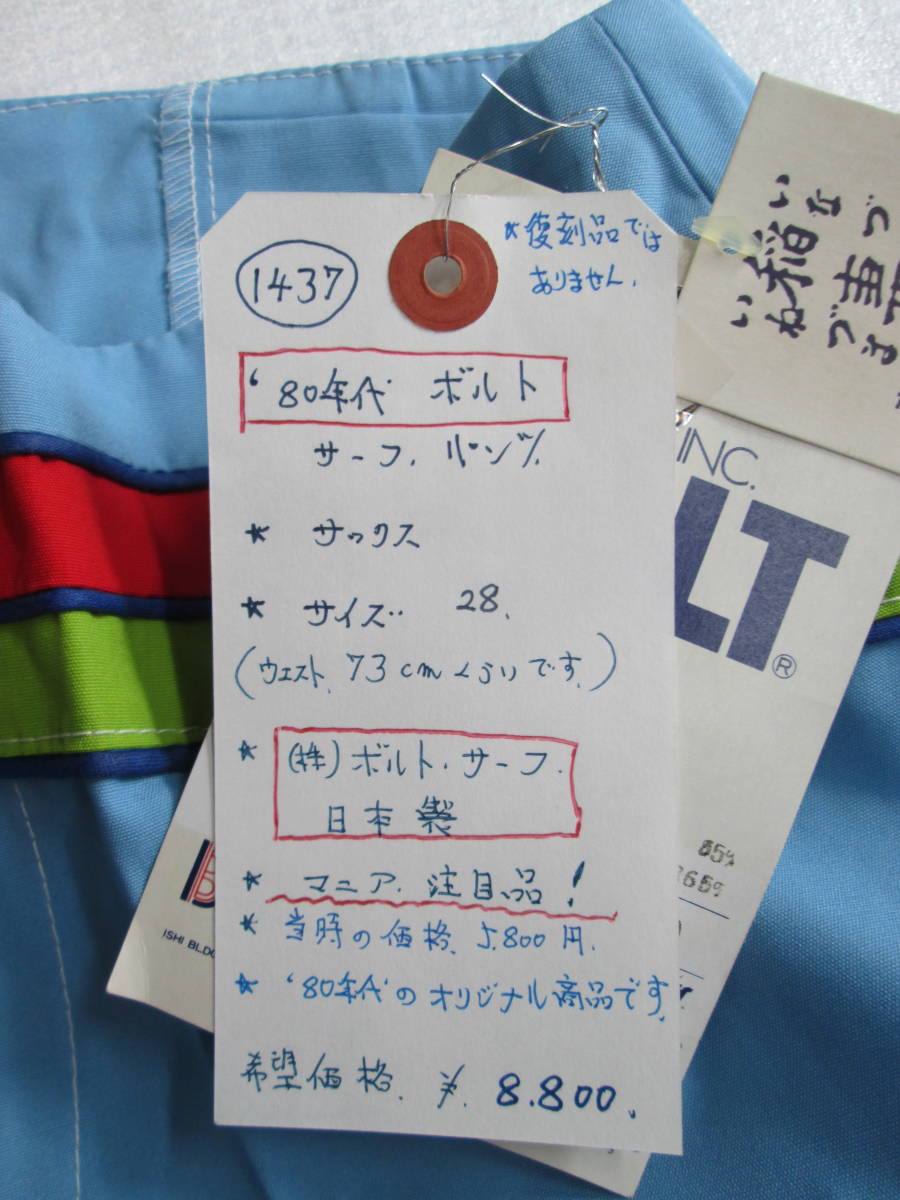 1437
★復刻品では
ありません.
'80年代 ボルト
サーフ.パンツ.
★ サックス
★ サイズ 28.
(ウエスト.73cmくらいです.)
★ (株)ボルト.サーフ.
日本製
★ マニア.注目品!
★ 当時の価格.5.800円.
★ '80年代のオリジナル商品です.
希望価格.¥.8.800.
INC.
LT®
ISHI BLDG